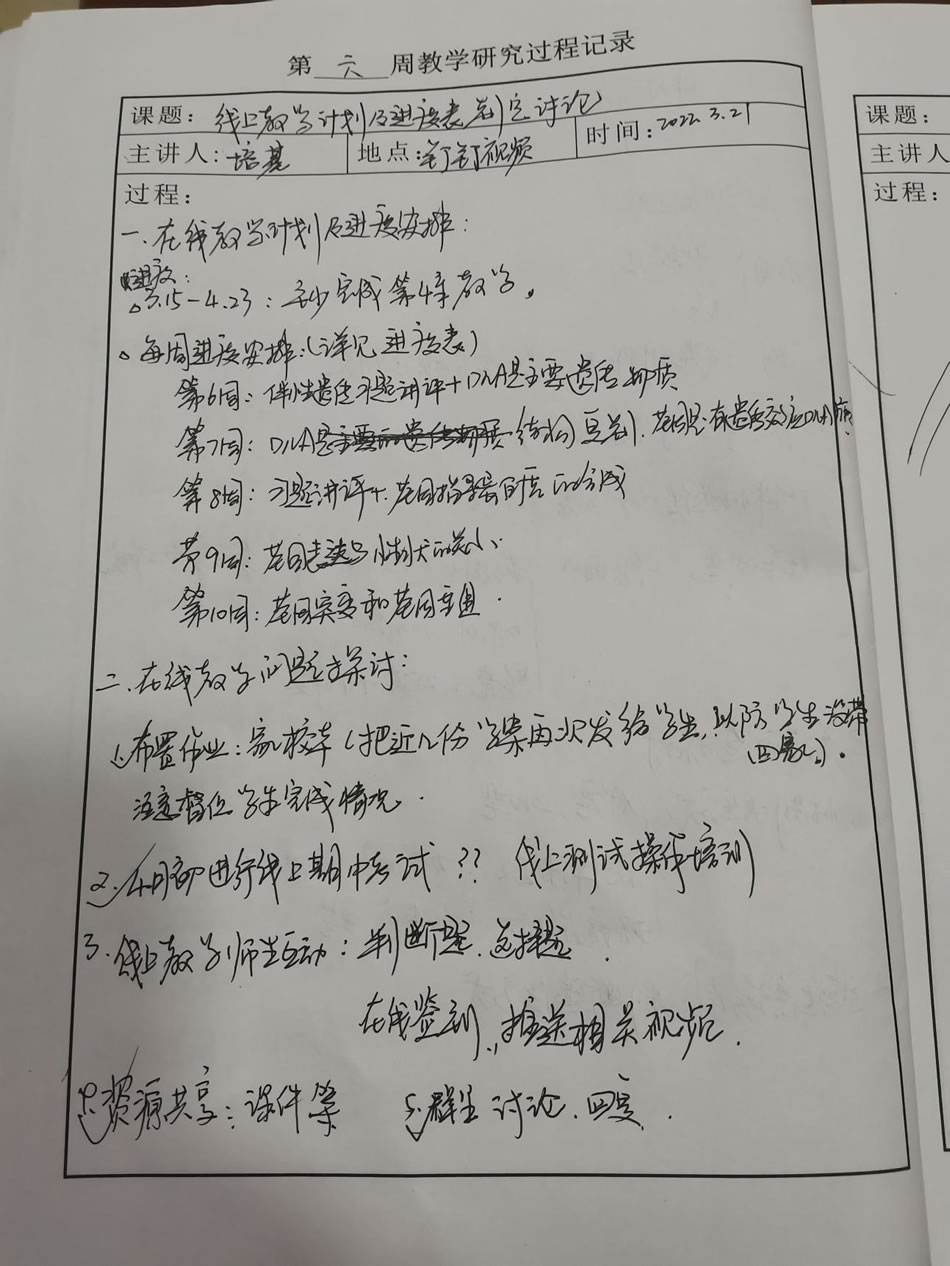 第 六 周教学研究过程记录
课题：线上教学计划及进度表制定讨论
主讲人：培基 地点：钉钉视频 时间：2022.3.21
过程：
一.在线教学计划及进度安排：
进度：
3.15-4.23：至少完成第4章教学。
每周进度安排：(详见进度表)
第6周：伴性遗传习题讲评+DNA是主要遗传物质
第7周：DNA 结构 复制、基因是有遗传效应DNA片
第8周：习题讲评+基因指导蛋白质的合成
第9周：基因表达与性状的关系.
第10周：基因突变和基因重组.
二.在线教学问题探讨：
1.布置作业：家校本(把近几份学案再次发给学生,以防学生没带
回家).
注意督促学生完成情况.
2.4月初进行线上期中考试?? 线上测试操作培训
3.线上教学师生互动：判断题、选择题.
在线签到、推送相关视频.
4.资源共享：课件等 5.群里讨论、回复.
课题：
主讲人
过程：